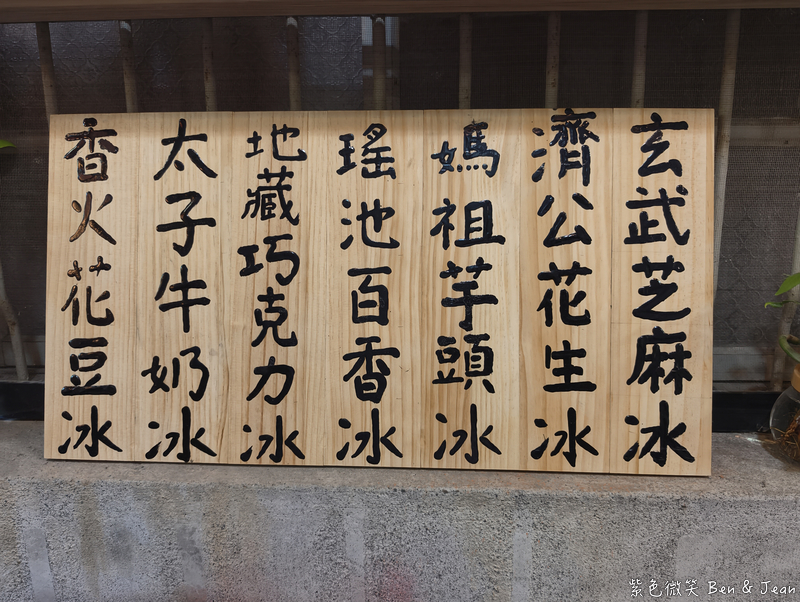 玄武芝麻冰
濟公花生冰
媽祖芋頭冰
瑤池百香冰
地藏巧克力冰
太子牛奶冰
香火花豆冰
紫色微笑 Ben & Jean